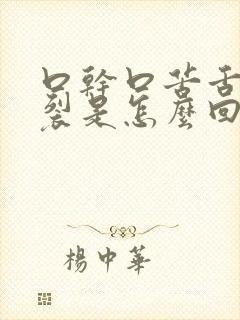 口幹口苦舌
裂是怎麼回
楊中華